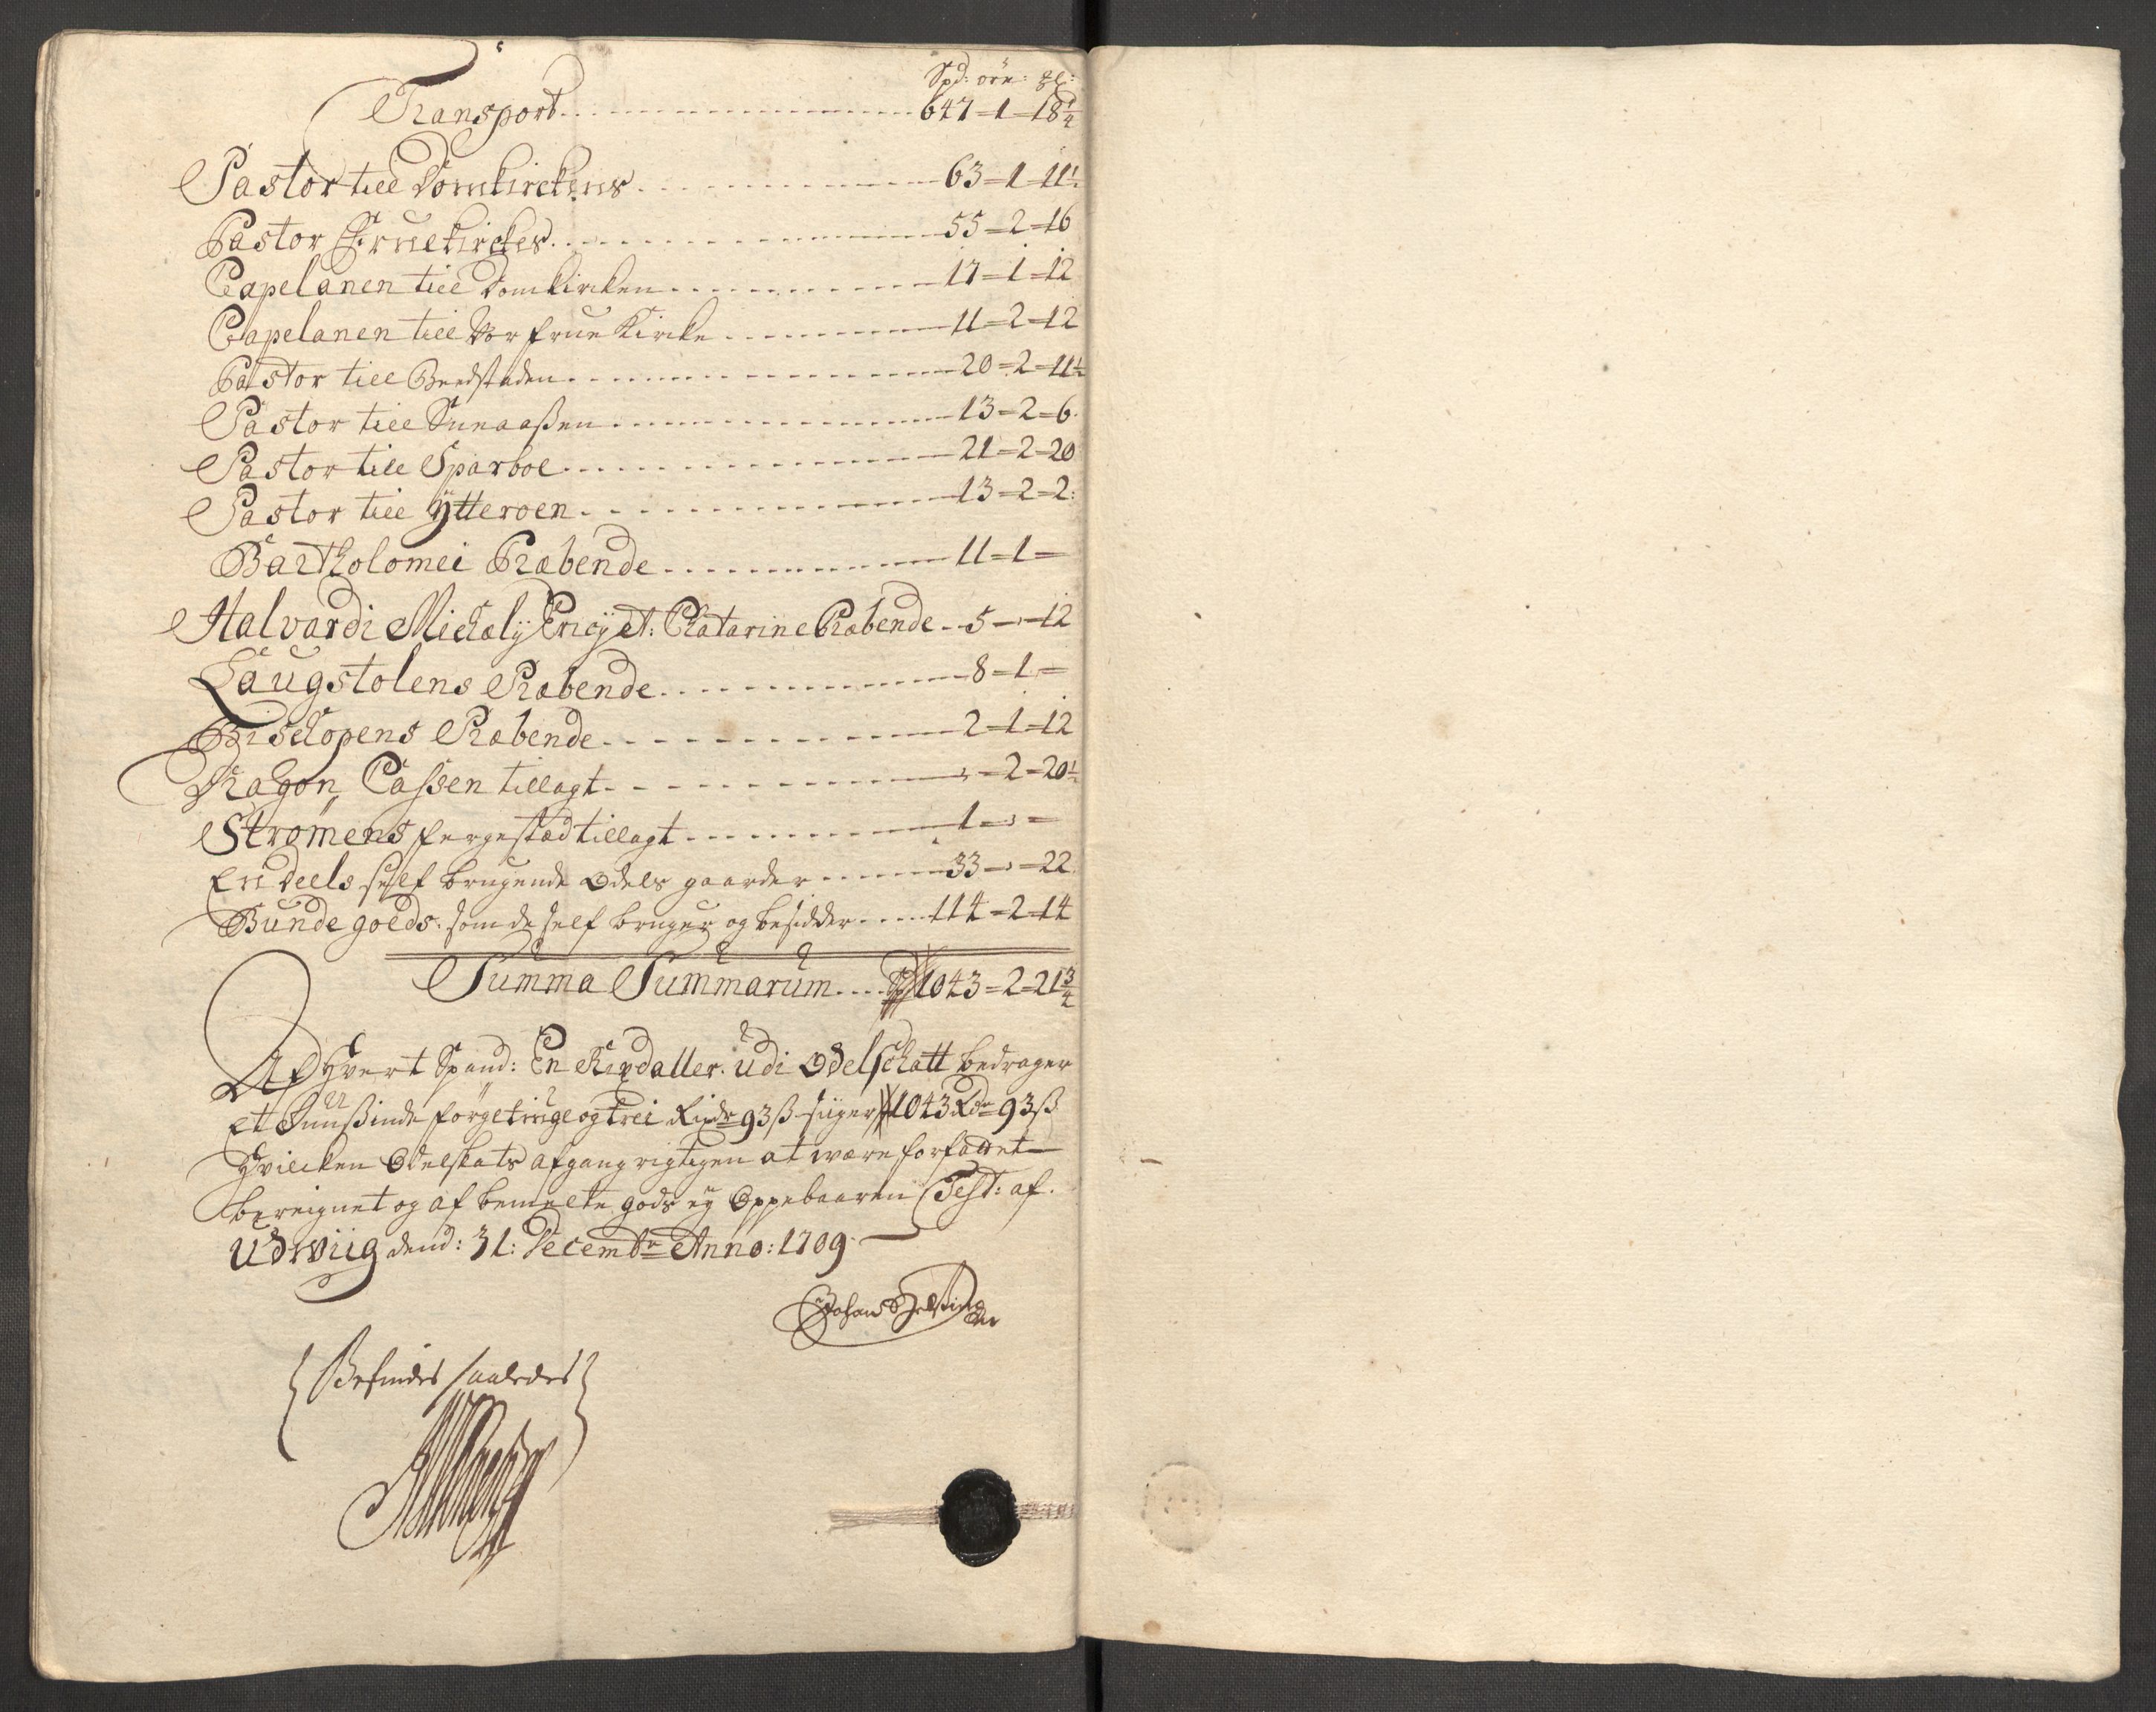 Spd: øre: ℔:
Transport . . . 647-1-18¼
Pastor till Domkirckens . . . 63-1-11½
Pastor Fruekirckes . . . 55-2-16
Capelanen till Domkircken . . . 17-1-12
Capelanen till Vor frue Kircke . . . 11-2-12
Pastor till Beedstaden . . . 20-2-11½
Pastor till Sneaaßen . . . 13-2-6
Pastor till Sparboe . . . 21-2-20
Pastor till Ytterøen . . . 13-2-2:
Bartholomei Præbende . . . 11-1-
Halvardi Michælij Ericij et: Chatarinæ Præbende - 5-,-12
Laugstolens Præbende . . . 8-1-
Bischopens Præbende . . . 2-1-12
Dragon Cassen tillagt . . . ,-2-20½
Strømens fergestæd tillagt . . . 1-,-
En deels self brugende Odels gaarder . . . 33-,-22
Bunde goeds. som de self bruger og besidder . . . 114-2-14
Summa Summarum . . . Spd 1043-2-21¾
Af Hvert Spand: En Rixdaller. udi Odelschatt bedrager
et Tuußinde førgetiuge og trei Rixdr 93ß siiger 1043 Rdr 93ß
Hvilcken Odelskats afgang rigtigen at være forfattet
bereignet og af bemelte gods ey Oppebaaren Test: af.
Udwiig dend: 31: Decembr Anno: 1709
Johan
Befindes saaledes